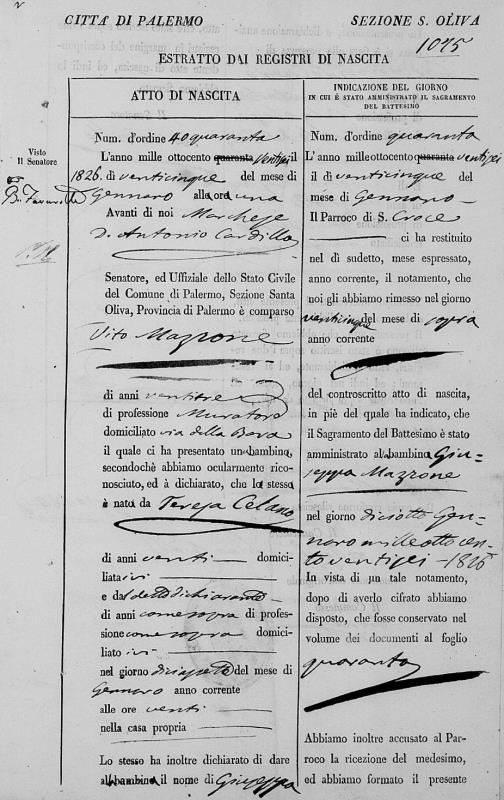 CITTÀ DI PALERMO
SEZIONE S. OLIVA
1025
ESTRATTO DAI REGISTRI DI NASCITA
Visto
Il Senatore
ATTO DI NASCITA
Num. d'ordine 40 quaranta
L'anno mille ottocento quaranta ventisei il
1826. dì venticinque del mese di
Gennaro alle ore una
Avanti di noi Marchese
D. Antonio Cardillo
Senatore, ed Uffiziale dello Stato Civile
del Comune di Palermo, Sezione Santa
Oliva, Provincia di Palermo è comparso
Vito Mazzone
di anni ventitre
di professione Muratore
domiciliato via della
il quale ci ha presentato una bambina,
secondochè abbiamo ocularmente rico-
nosciuto, ed à dichiarato, che la stessa
è nata da Teresa Celano
di anni venti domici-
liata ivi
e dal detto dichiarante
di anni come sopra di profes-
sione come sopra domici-
liato ivi
nel giorno diciasette del mese di
Gennaro anno corrente
alle ore venti
nella casa propria
Lo stesso ha inoltre dichiarato di dare
alla bambina il nome di Giuseppa
INDICAZIONE DEL GIORNO
IN CUI È STATO AMMINISTRATO IL SAGRAMENTO
DEL BATTESIMO
Num. d'ordine quaranta
L'anno mille ottocento quaranta ventisei
il dì venticinque del
mese di Gennaro
Il Parroco di S. Croce
ci ha restituito
nel dì sudetto, mese espressato,
anno corrente, il notamento, che
noi gli abbiamo rimesso nel giorno
venticinque del mese di sopra
anno corrente
del controscritto atto di nascita,
in piè del quale ha indicato, che
il Sagramento del Battesimo è stato
amministrato alla bambina Giu-
seppa Mazzone
nel giorno diciotto Gen-
naro mille otto cen-
to ventisei - 1826
In vista di un tale notamento,
dopo di averlo cifrato abbiamo
disposto, che fosse conservato nel
volume dei documenti al foglio
quaranta
Abbiamo inoltre accusato al Par-
roco la ricezione del medesimo,
ed abbiamo formato il presente